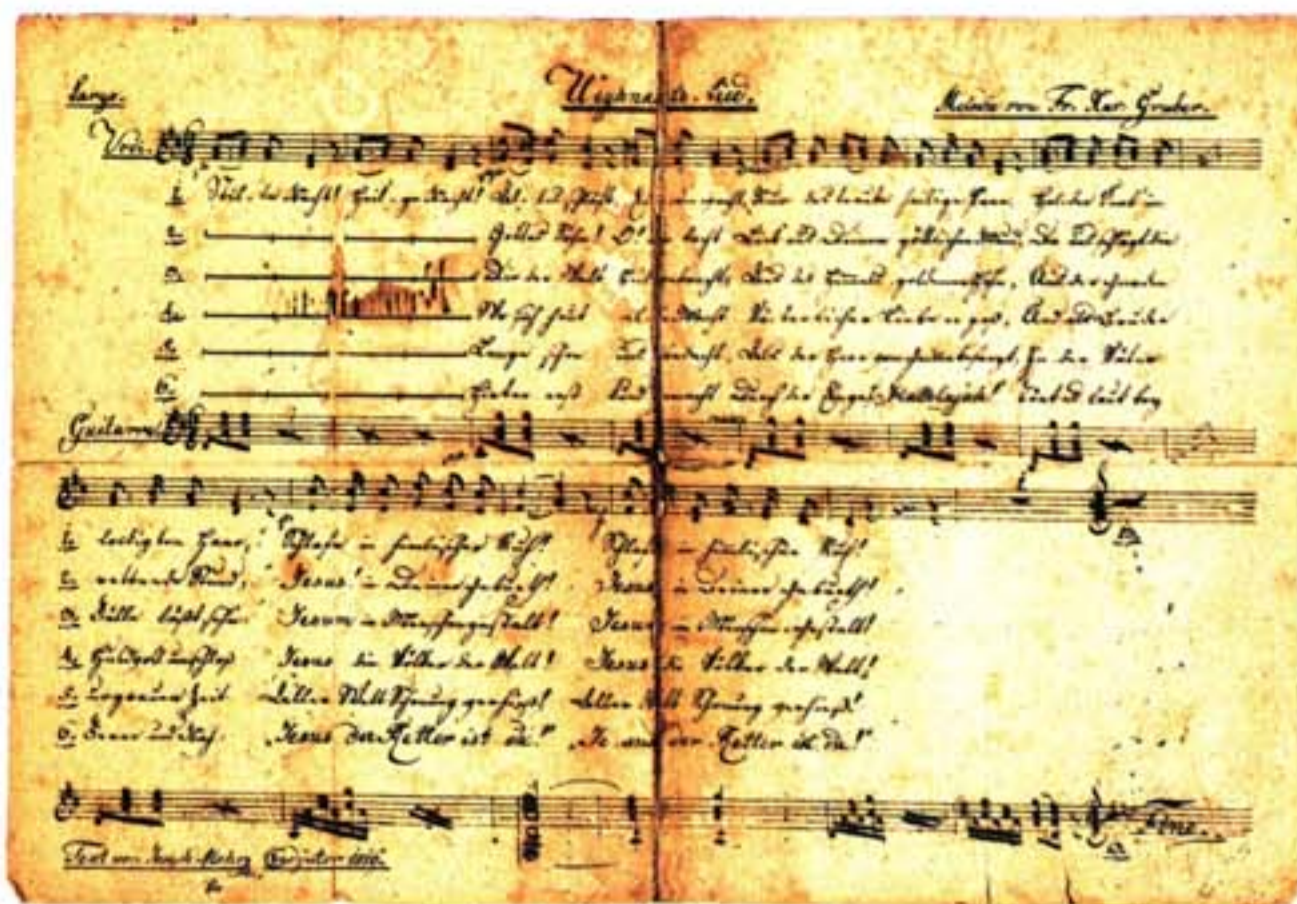 Weyhnachts-Lied.
Melodie von Fr. Xav. Gruber.
Voci.
1. Stil-le Nacht! Heil-ge Nacht! Al-les schläft, wacht Nur das traute heilige Paar. Holder Knab' im
2. Gottes Sohn! O! wie lacht Lieb' aus Deinem göttlichen Mund, Da uns schlägt die
3. Die der Welt Heil gebracht, Aus des Himmels goldnen Höhn, Uns der Gnaden
4. Wo sich heut alle Macht Väterlicher Liebe ergoß, Und als Bruder
5. Lange schon uns bedacht, Als der Herr vom Grimme befreyt, In der Väter
6. Hirten erst kund gemacht Durch der Engel Halleluja! Tönt es laut bey
Guitarre
1. lockigten Haar, Schlafe in himmlischer Ruh! Schlafe in himmlischer Ruh!
2. rettende Stund, Jesus! in Deiner Geburth! Jesus in Deiner Geburth!
3. Fülle läßt sehn Jesum in Menschengestalt! Jesum in Menschengestalt!
4. Huldvoll umschloß Jesus die Völker der Welt! Jesus die Völker der Welt!
5. urgrauer Zeit Aller Welt Schonung verhieß! Aller Welt Schonung verhieß!
6. Ferne und Nah: „Jesus der Retter ist da!" „Jesus der Retter ist da!"
Fine.
Text von Joseph Mohr Coadjutor 1816.